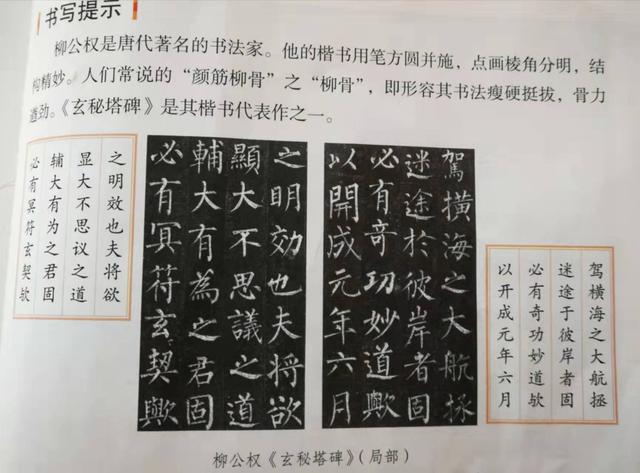 书写提示
柳公权是唐代著名的书法家。他的楷书用笔方圆并施，点画棱角分明，结
构精妙。人们常说的“颜筋柳骨”之“柳骨”，即形容其书法瘦硬挺拔，骨力
遒劲。《玄秘塔碑》是其楷书代表作之一。
驾横海之大航拯
迷途于彼岸者固
必有奇功妙道欤
以开成元年六月
駕橫海之大航拯
迷途於彼岸者固
必有奇功妙道歟
以開成元年六月
之明効也夫将欲
顯大不思議之道
輔大有為之君固
必有冥符玄契歟
之明效也夫将欲
显大不思议之道
辅大有为之君固
必有冥符玄契欤
柳公权《玄秘塔碑》（局部）